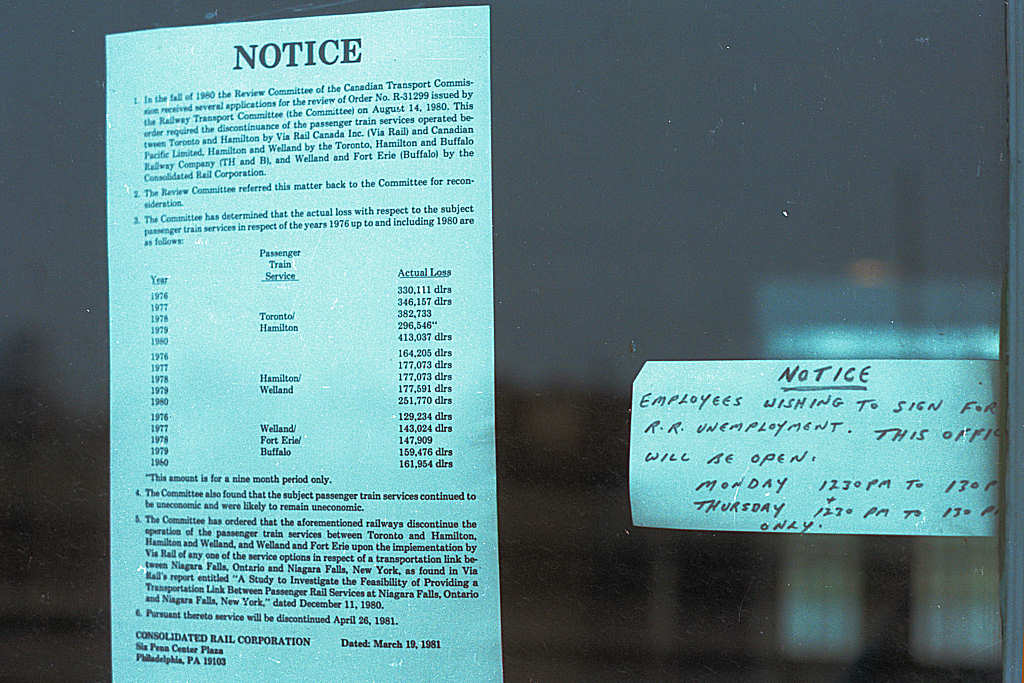 NOTICE
1. In the fall of 1980 the Review Committee of the Canadian Transport Commis-
sion received several applications for the review of Order No. R-31299 issued by
the Railway Transport Committee (the Committee) on August 14, 1980. This
order required the discontinuance of the passenger train services operated be-
tween Toronto and Hamilton by Via Rail Canada Inc. (Via Rail) and Canadian
Pacific Limited, Hamilton and Welland by the Toronto, Hamilton and Buffalo
Railway Company (TH and B), and Welland and Fort Erie (Buffalo) by the
Consolidated Rail Corporation.
2. The Review Committee referred this matter back to the Committee for recon-
sideration.
3. The Committee has determined that the actual loss with respect to the subject
passenger train services in respect of the years 1976 up to and including 1980 are
as follows:
Passenger
Train
Year Service Actual Loss
1976 330,111 dlrs
1977 346,157 dlrs
1978 Toronto/ 382,733
1979 Hamilton 296,546"
1980 413,037 dlrs
1976 164,205 dlrs
1977 177,073 dlrs
1978 Hamilton/ 177,073 dlrs
1979 Welland 177,591 dlrs
1980 251,770 dlrs
1976 129,234 dlrs
1977 Welland/ 143,024 dlrs
1978 Fort Erie/ 147,909
1979 Buffalo 159,476 dlrs
1980 161,954 dlrs
"This amount is for a nine month period only.
4. The Committee also found that the subject passenger train services continued to
be uneconomic and were likely to remain uneconomic.
5. The Committee has ordered that the aforementioned railways discontinue the
operation of the passenger train services between Toronto and Hamilton,
Hamilton and Welland, and Welland and Fort Erie upon the implementation by
Via Rail of any one of the service options in respect of a transportation link be-
tween Niagara Falls, Ontario and Niagara Falls, New York, as found in Via
Rail's report entitled "A Study to Investigate the Feasibility of Providing a
Transportation Link Between Passenger Rail Services at Niagara Falls, Ontario
and Niagara Falls, New York," dated December 11, 1980.
6. Pursuant thereto service will be discontinued April 26, 1981.
CONSOLIDATED RAIL CORPORATION Dated: March 19, 1981
Six Penn Center Plaza
Philadelphia, PA 19103
NOTICE
EMPLOYEES WISHING TO SIGN FOR
R.R. UNEMPLOYMENT. THIS OFFIC
WILL BE OPEN.
MONDAY 1230 PM TO 130 P
+
THURSDAY 1230 PM TO 130 P
ONLY.